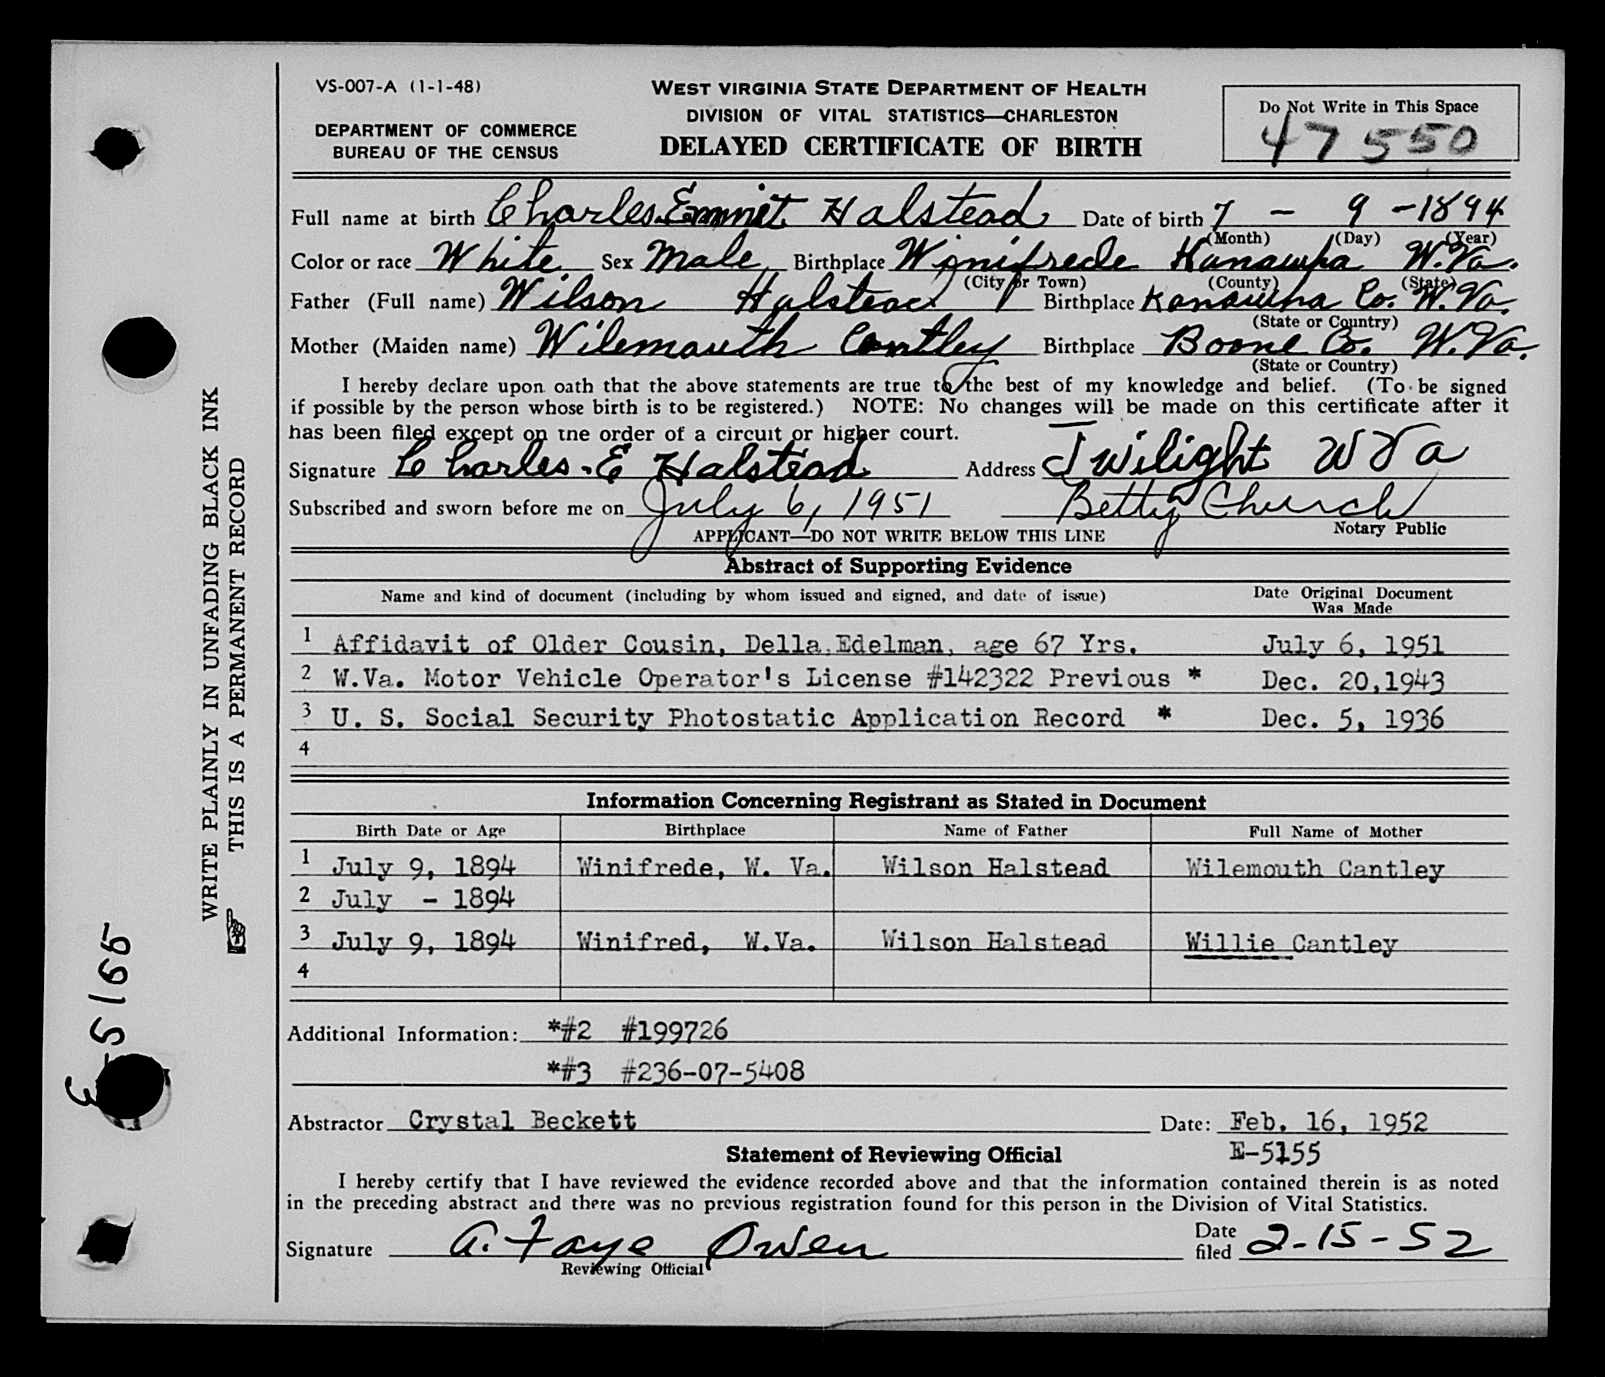 VS-007-A (1-1-48)
DEPARTMENT OF COMMERCE
BUREAU OF THE CENSUS
WEST VIRGINIA STATE DEPARTMENT OF HEALTH
DIVISION OF VITAL STATISTICS—CHARLESTON
DELAYED CERTIFICATE OF BIRTH
Do Not Write in This Space
47550
Full name at birth Charles Emmit Halstead Date of birth 7 - 9 - 1894
(Month) (Day) (Year)
Color or race White Sex Male Birthplace Winifrede Kanawha W.Va.
(City or Town) (County) (State)
Father (Full name) Wilson Halstead Birthplace Kanawha Co. W.Va.
(State or Country)
Mother (Maiden name) Wilemouth Cantley Birthplace Boone Co. W.Va.
(State or Country)
I hereby declare upon oath that the above statements are true to the best of my knowledge and belief. (To be signed
if possible by the person whose birth is to be registered.) NOTE: No changes will be made on this certificate after it
has been filed except on the order of a circuit or higher court.
Signature Charles. E Halstead Address Twilight W Va
Subscribed and sworn before me on July 6, 1951 Betty Church
Notary Public
APPLICANT—DO NOT WRITE BELOW THIS LINE
Abstract of Supporting Evidence
Name and kind of document (including by whom issued and signed, and date of issue) Date Original Document
Was Made
1 Affidavit of Older Cousin, Della Edelman, age 67 Yrs. July 6, 1951
2 W.Va. Motor Vehicle Operator's License #142322 Previous * Dec. 20,1943
3 U. S. Social Security Photostatic Application Record * Dec. 5, 1936
4
Information Concerning Registrant as Stated in Document
Birth Date or Age Birthplace Name of Father Full Name of Mother
1 July 9, 1894 Winifrede, W. Va. Wilson Halstead Wilemouth Cantley
2 July - 1894
3 July 9, 1894 Winifred, W.Va. Wilson Halstead Willie Cantley
4
Additional Information: *#2 #199726
*#3 #236-07-5408
Abstractor Crystal Beckett Date: Feb. 16, 1952
E-5155
Statement of Reviewing Official
I hereby certify that I have reviewed the evidence recorded above and that the information contained therein is as noted
in the preceding abstract and there was no previous registration found for this person in the Division of Vital Statistics.
Signature A. Faye Owen Date
filed 2-15-52
Reviewing Official
WRITE PLAINLY IN UNFADING BLACK INK
THIS IS A PERMANENT RECORD